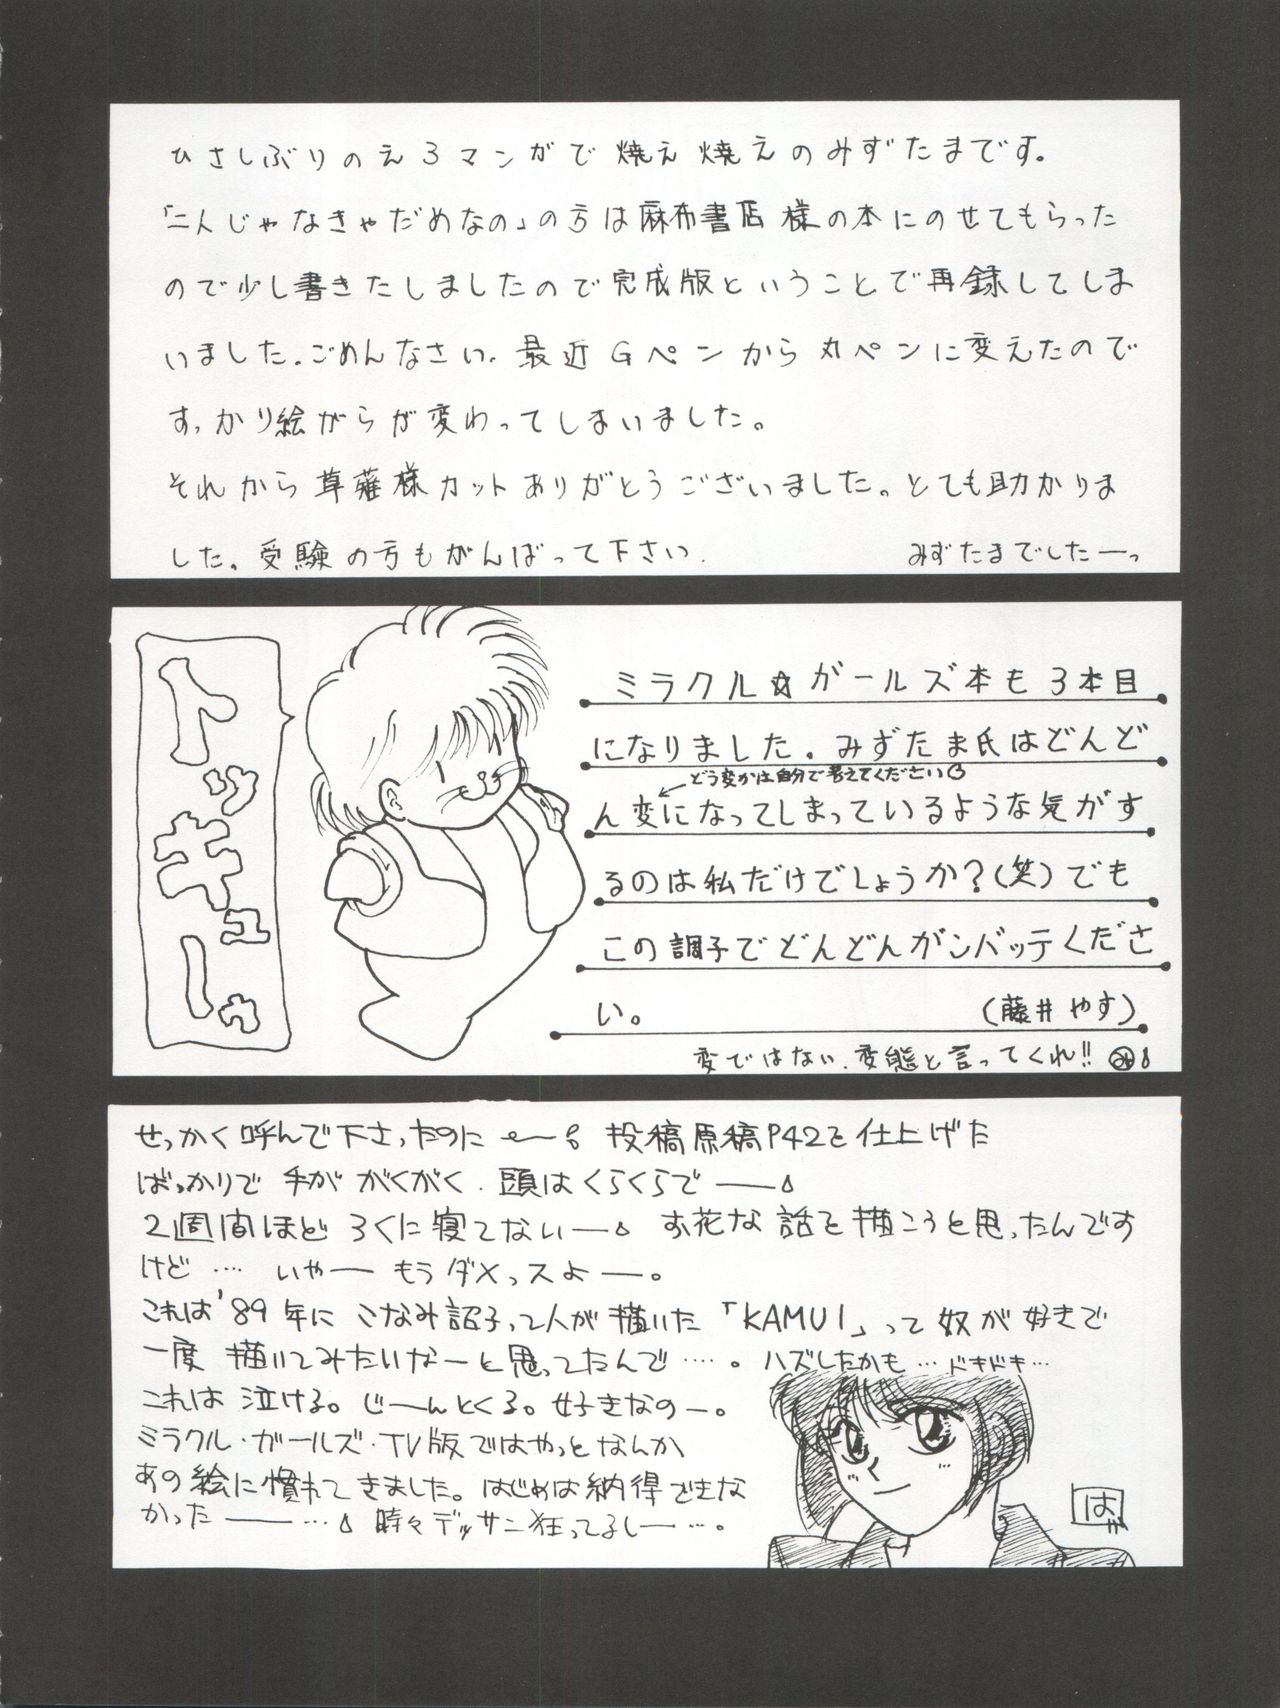 ひさしぶりのえろマンガで燒え燒えのみずたまです。
「二人じゃなきゃだめなの」の方は麻布書店様の本にのせてもらった
ので少し書きたしましたので完成版ということで再録してしま
いました。ごめんなさい。最近Gペンから丸ペンに変えたので
すっかり絵がらが変わってしまいました。
それから草薙様カットありがとうございました。とても助かりま
した。受験の方もがんばって下さい.
みずたまでしたーっ
トッキューっ
ミラクル☆ガールズ本も3本目
になりました。みずたま氏はどんど
どう変かは自分で考えてください
ん変になってしまっているような気がす
るのは私だけでしょうか?(笑)でも
この調子でどんどんガンバッテくださ
い。 (藤井やす)
変ではない.変態と言ってくれ!!
せっかく呼んで下さったのに 投稿原稿P42を仕上げた
ばっかりで 手が がくがく.頭は くらくらで――
2週間ほど ろくに寝てないー お花な話を描こうと思ったんです
けど…. いやー もうダメっスよー。
これは'89年に こなみ詔子って人が描いた「KAMUI」って奴が好きで
一度 描いてみたいなーと思ってたんで…. 。ハズしたかも…ドキドキ…
これは 泣ける。じーんとくる。好きなのー。
ミラクル・ガールズ・TV版ではやっとなんか
あの絵に慣れてきました。はじめは納得できな
かった――… 時々デッサン狂ってるしー…。
ば